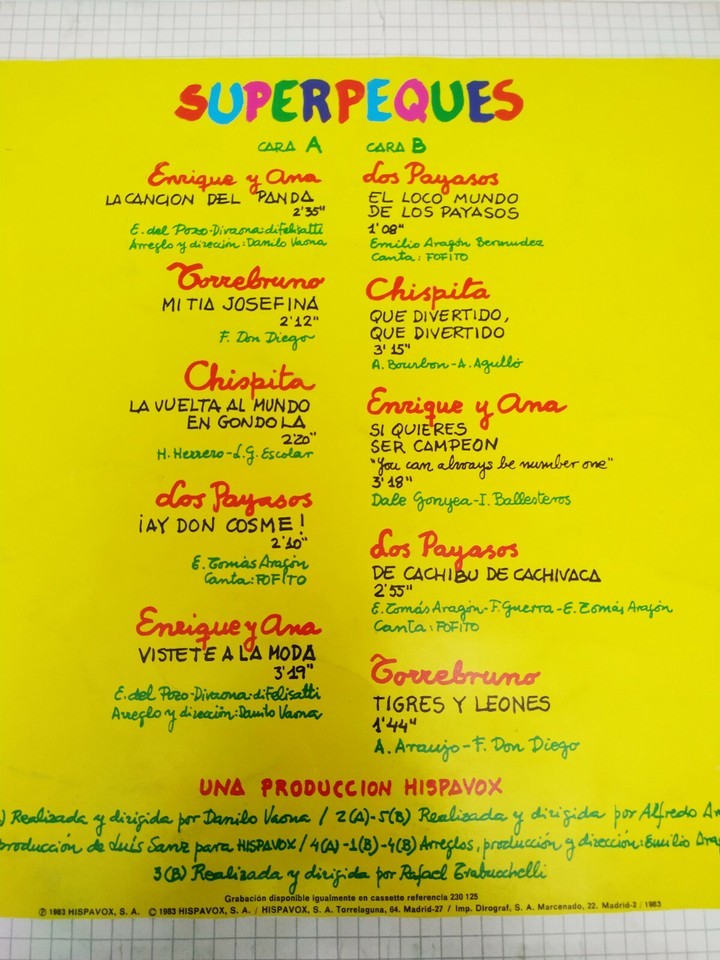 SUPERPEQUES
CARA A
Enrique y Ana
LA CANCION DEL PANDA
2'35"
E. del Pozo-Divaona-difelisatti
Arreglo y dirección: Danilo Vaona
Torrebruno
MI TIA JOSEFINA
2'12"
F. Don Diego
Chispita
LA VUELTA AL MUNDO
EN GONDOLA
2'20"
H. Herrero-L.G. Escolar
Los Payasos
¡AY DON COSME!
2'10"
E. Tomás Aragón
Canta: FOFITO
Enrique y Ana
VISTETE A LA MODA
3'19"
E. del Pozo-Divaona-difelisatti
Arreglo y dirección: Danilo Vaona
CARA B
Los Payasos
EL LOCO MUNDO
DE LOS PAYASOS
1'08"
Emilio Aragón Bermudez
Canta: FOFITO
Chispita
QUE DIVERTIDO,
QUE DIVERTIDO
3'15"
A. Bourbon-A. Agulló
Enrique y Ana
SI QUIERES
SER CAMPEON
"You can always be number one"
3'18"
Dale Gonyea-I. Ballesteros
Los Payasos
DE CACHIBU DE CACHIVACA
2'55"
E. Tomás Aragón-F. Guerra-E. Tomás Aragón
Canta: FOFITO
Torrebruno
TIGRES Y LEONES
1'44"
A. Araujo-F. Don Diego
UNA PRODUCCION HISPAVOX
) Realizada y dirigida por Danilo Vaona / 2(A)-5(B) Realizada y dirigida por Alfredo
producción de Luís Sanz para HISPAVOX / 4(A)-1(B)-4(B) Arreglos, producción y dirección: Emilio
3(B) Realizada y dirigida por Rafael Trabucchelli
Grabación disponible igualmente en cassette referencia 230 125
℗ 1983 HISPAVOX, S. A. © 1983 HISPAVOX, S. A. / HISPAVOX, S. A. Torrelaguna, 64. Madrid-27 / Imp. Dirograf, S. A. Marcenado, 22. Madrid-2 / 1983